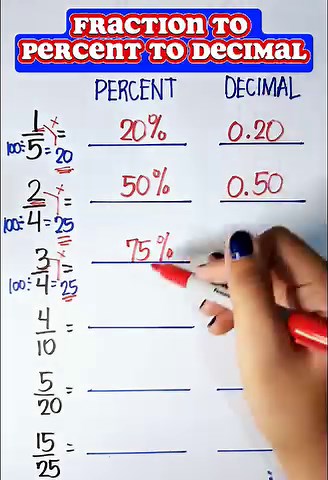 FRACTION TO
PERCENT TO DECIMAL
PERCENT DECIMAL
1/5 = 20% 0.20
100÷ = 20
2/4 = 50% 0.50
100÷ = 25
3/4 = 75%
100÷ = 25
4/10 =
5/20 =
15/25 =